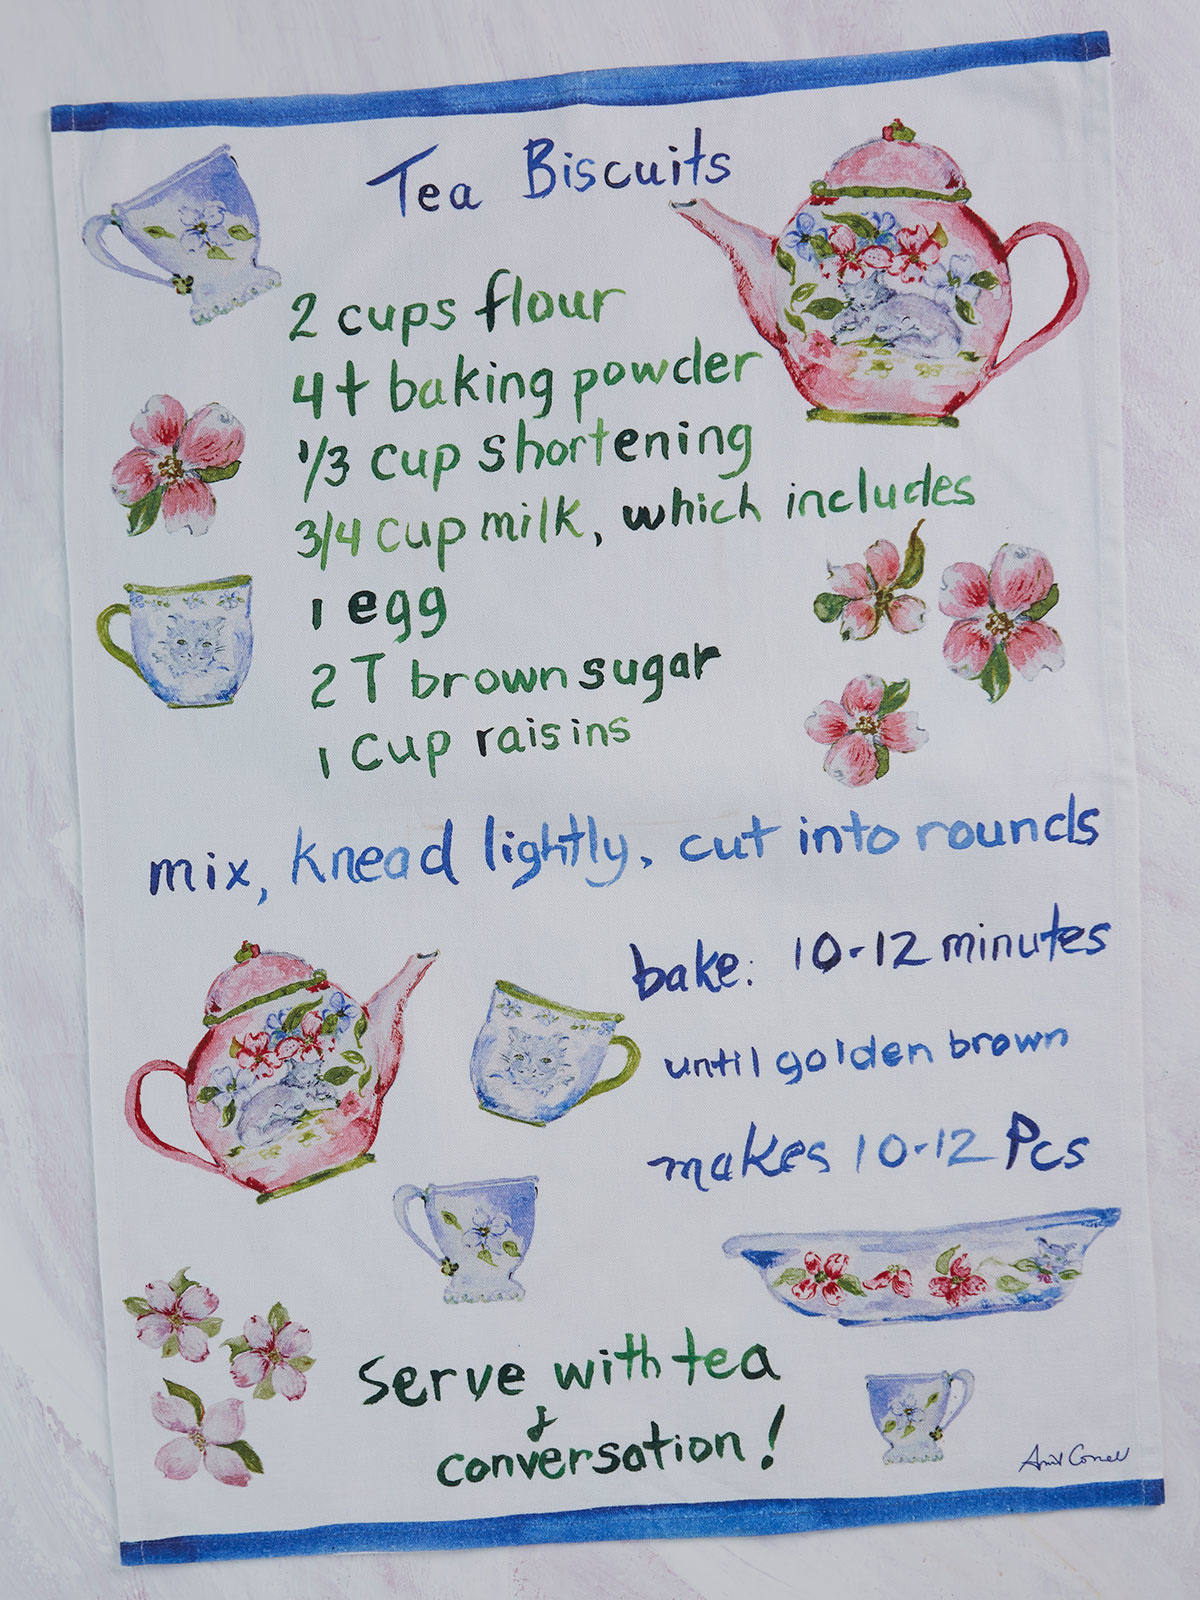 Tea Biscuits
2 cups flour
4t baking powder
1/3 cup shortening
3/4 cup milk, which includes
1 egg
2 T brown sugar
1 cup raisins
mix, knead lightly, cut into rounds
bake: 10-12 minutes
until golden brown
makes 10-12 Pcs
serve with tea
&
conversation!